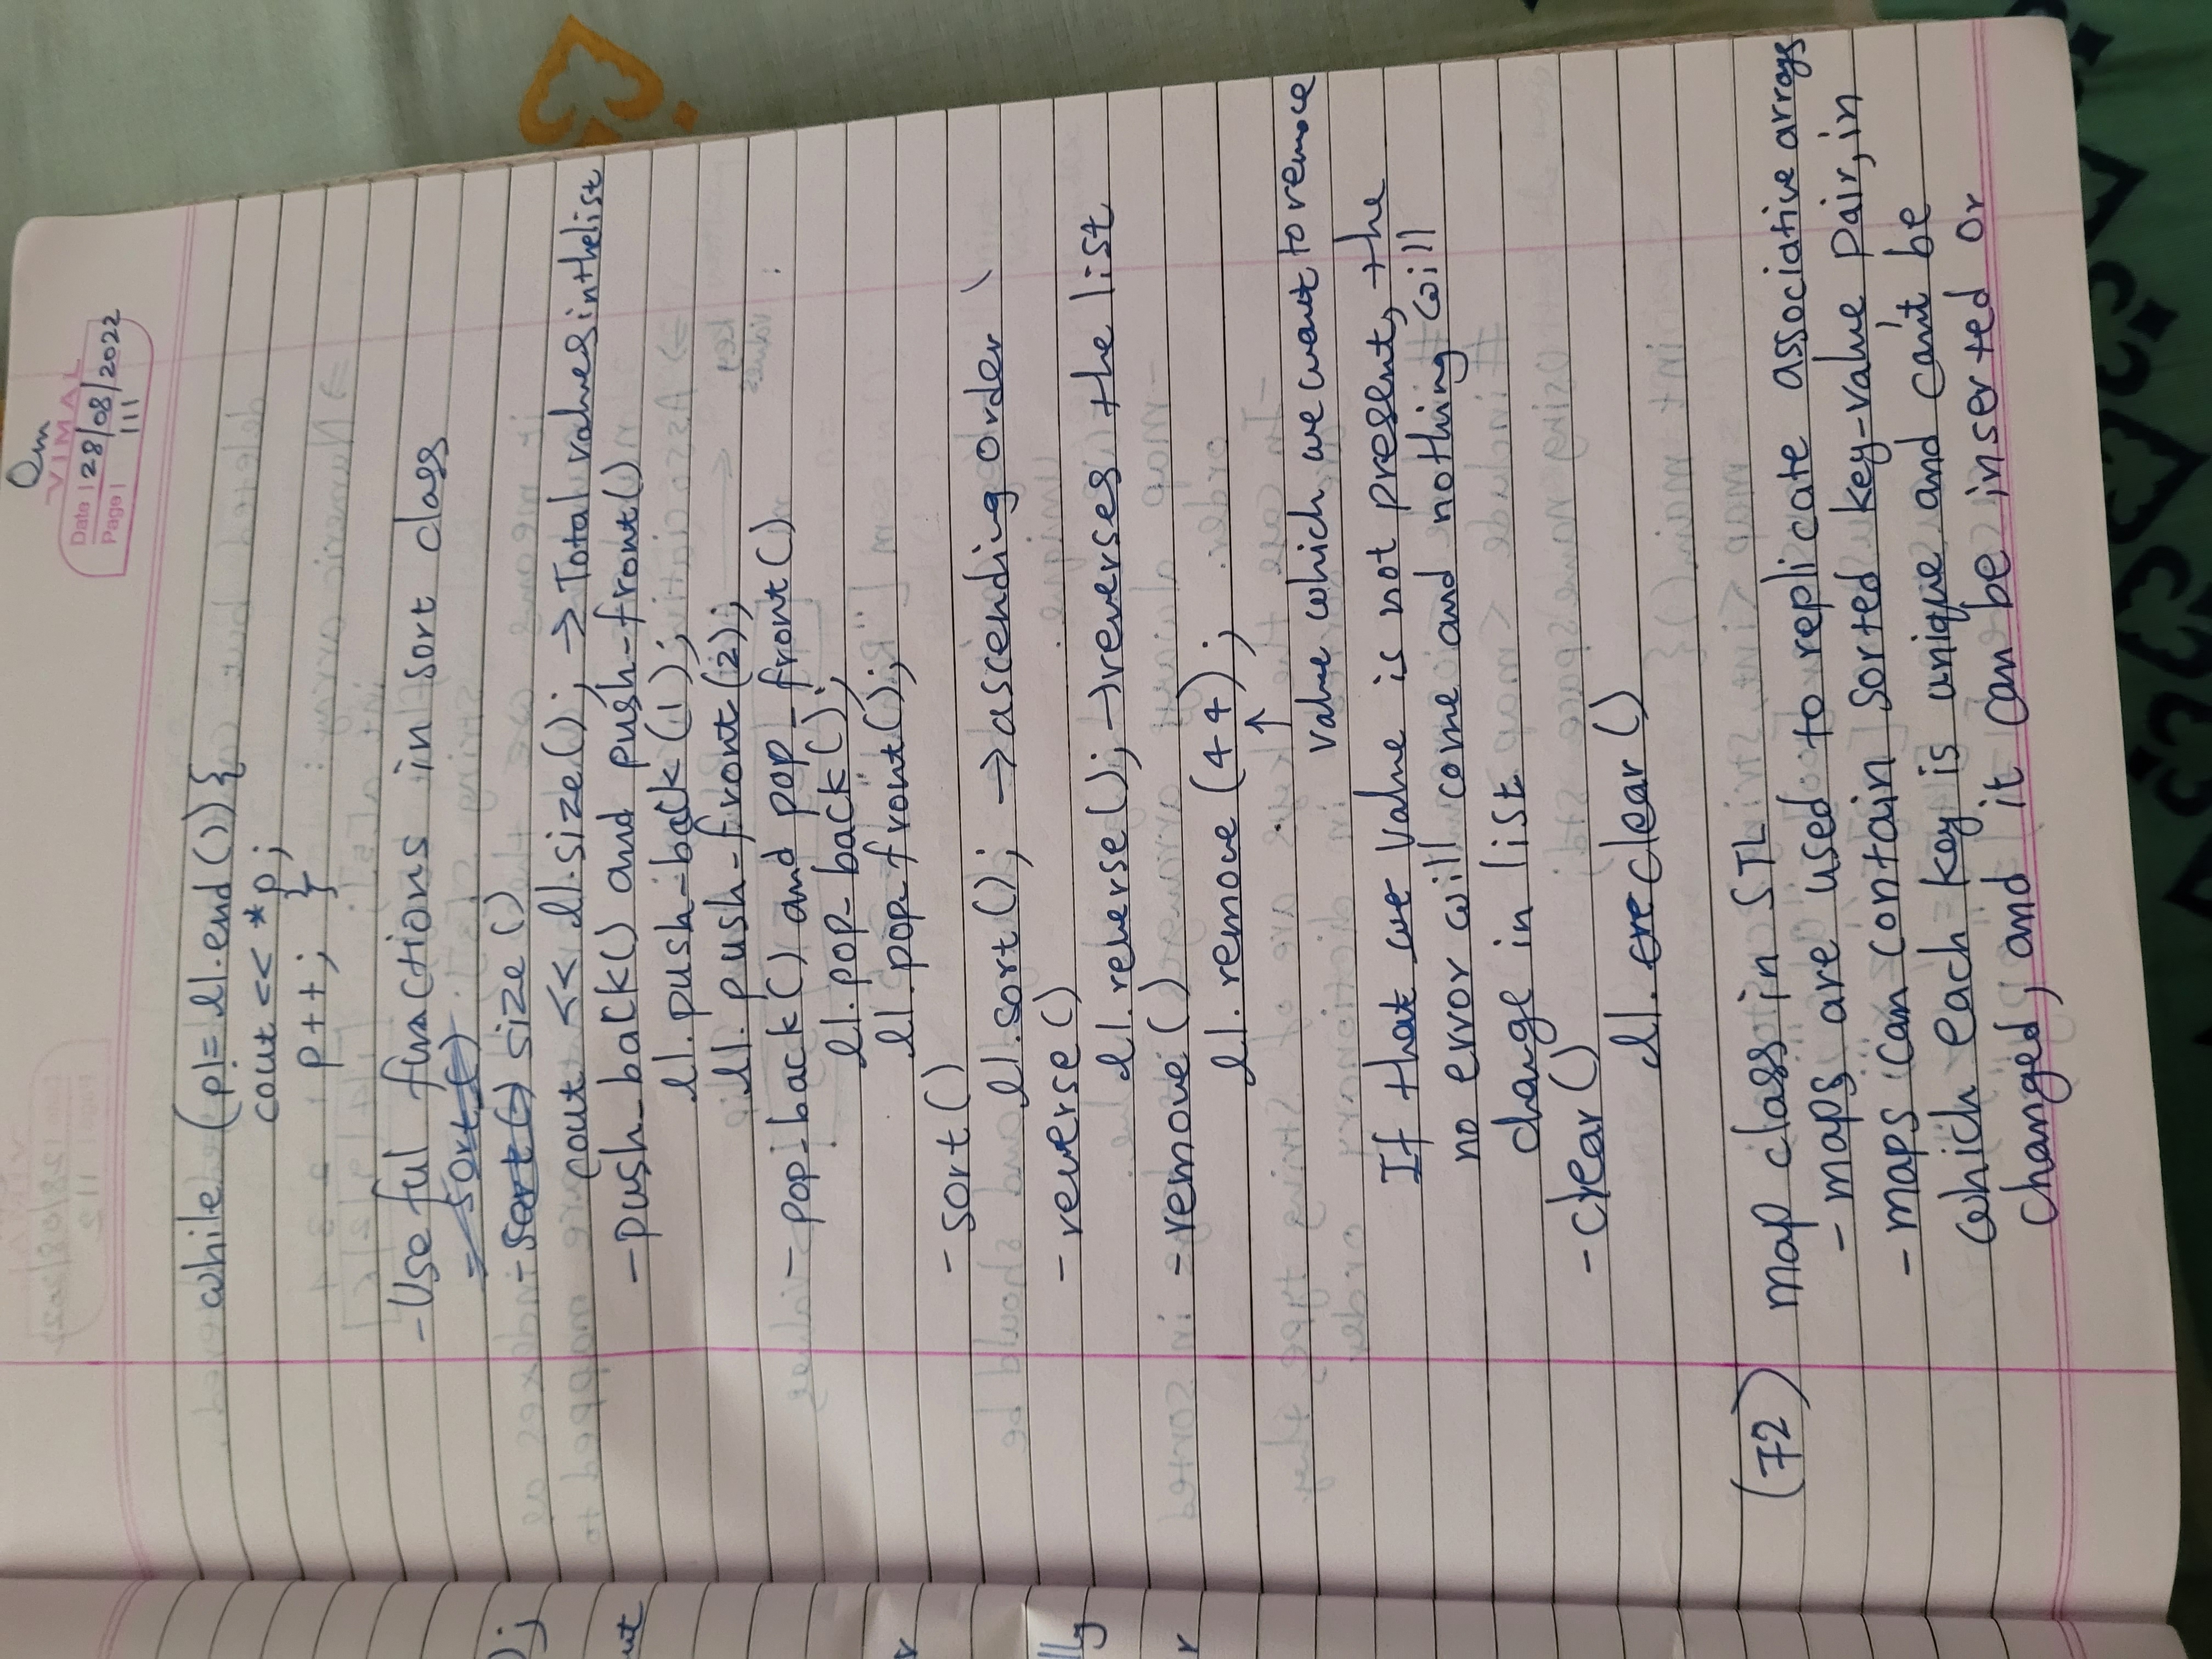 Om
VIMAL
Date | 28/08/2022
Page | 111
while (p!= l1.end()){
cout << *p;
p++; }
- Useful functions in sort class
- sort()
- sort() size()
cout << l1.size(); → Total values in the list
- push_back() and push_front()
l1.push_back(1);
l1.push_front(2);
- pop_back() and pop_front()
l1.pop_back();
l1.pop_front();
- sort()
l1.sort(); → ascending order
- reverse()
l1.reverse(); → reverses the list
- remove()
l1.remove(44);
↑
value which we want to remove
If that we value is not present, the
no error will come and nothing will
change in list
- clear()
l1.cre clear()
(72) map class in STL
- maps are used to replicate associative arrays
- maps can contain sorted key-value pair, in
which each key is unique and can't be
changed, and it can be inserted or